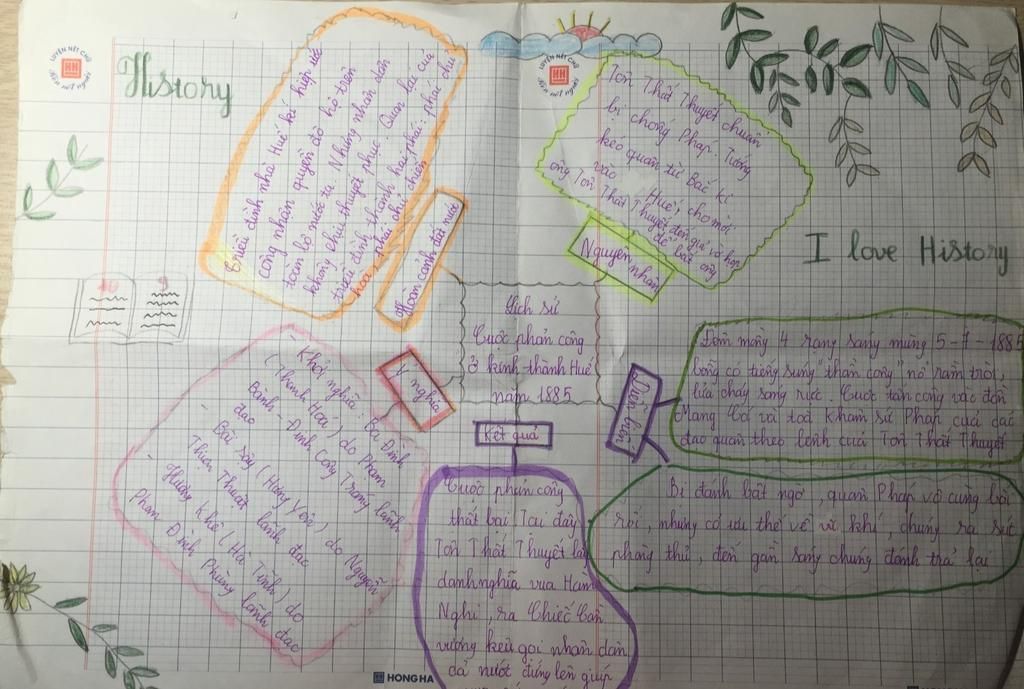 LUYỆN NÉT CHỮ
RÈN NẾT NGƯỜI
History
Triều đình nhà Huế kí hiệp ước
công nhận quyền đô hộ trên
toàn bộ nước ta. Nhưng nhân dân
không chịu thuyết phục. Quan lại của
triều đình thành hai phái: phái chủ
hoà, phái chủ chiến
Hoàn cảnh đất nước
LUYỆN NÉT CHỮ
RÈN NẾT NGƯỜI
Tôn Thất Thuyết chuẩn
bị chống Pháp. Tướng
kéo quân từ Bắc kì
vào Huế, cho mời
ông Tôn Thất Thuyết đến giả vờ họp
để bắt ông
Nguyên nhân
I love History
10 9
Lịch sử
Cuộc phản công
ở kinh thành Huế
năm 1885
Ý nghĩa
- Khởi nghĩa Ba Đình
(Thanh Hoá) do Phạm
Bành - Đinh Công Tráng lãnh
đạo
- Bãi sậy (Hưng Yên) do Nguyễn
Thiện Thuật lãnh đạo
- Hương Khê (Hà Tĩnh) do
Phan Đình Phùng lãnh đạo
Kết quả
Cuộc phản công
thất bại. Tại đây
Tôn Thất Thuyết lấy
danh nghĩa vua Hàm
Nghi, ra Chiếu Cần
vương kêu gọi nhân dân
cả nước đứng lên giúp
Diễn biến
Đêm mồng 4 rạng sáng mùng 5 - 7 - 1885
bỗng có tiếng súng "thần công" nổ rầm trời,
lửa cháy sáng rực. Cuộc tấn công vào đồn
Mang Cá và toà Khâm sứ Pháp của các
đạo quân theo lệnh của Tôn Thất Thuyết
Bị đánh bất ngờ, quân Pháp vô cùng bối
rối, nhưng có ưu thế về vũ khí, chúng ra sức
phòng thủ, đến gần sáng chúng đánh trả lại
HONG HA